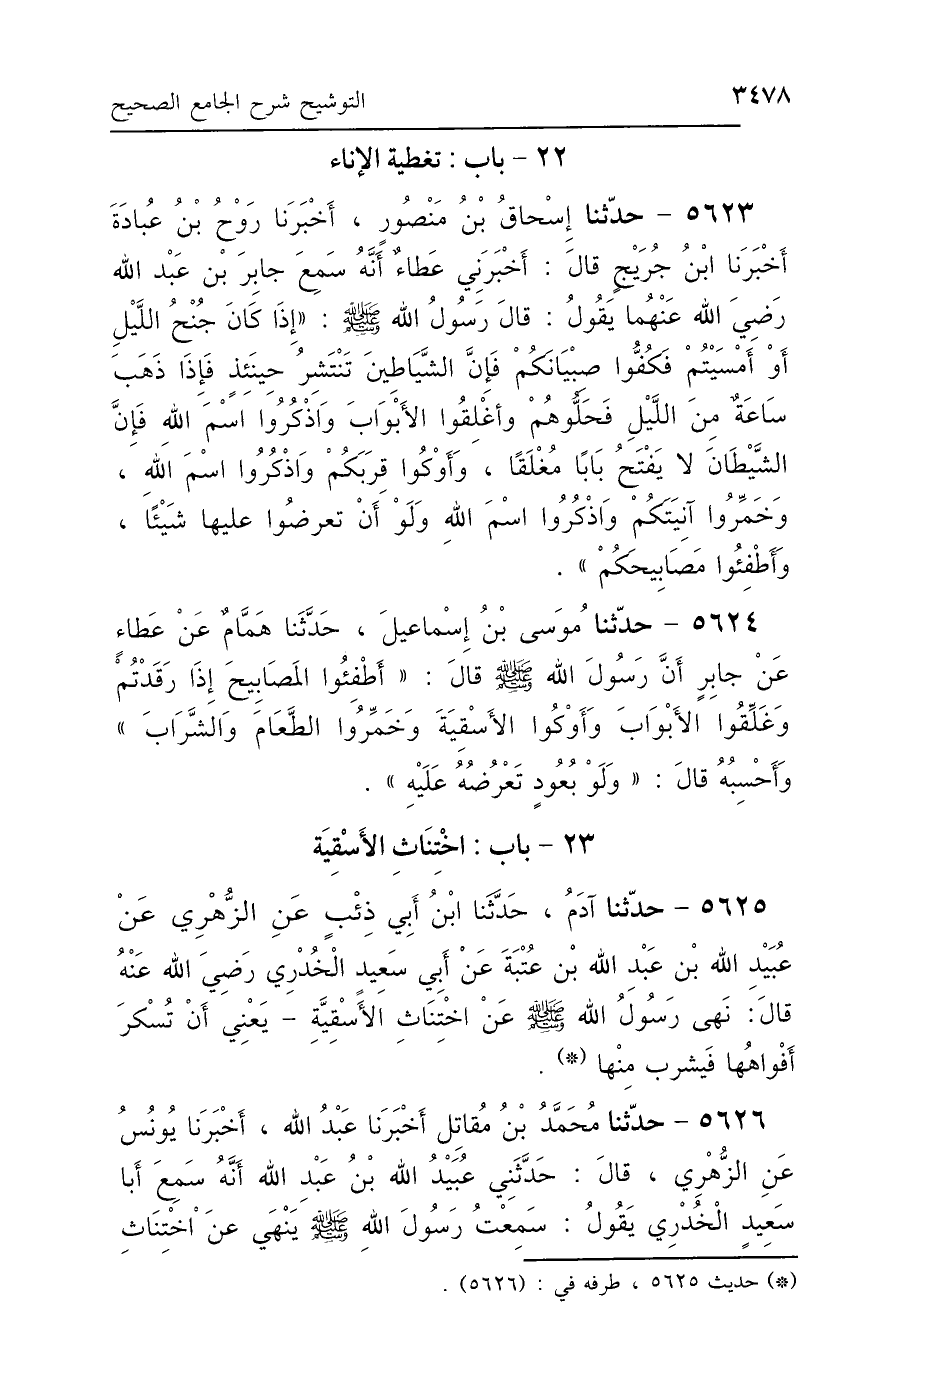 ٣٤٧٨ التوشيح شرح الجامع الصحيح
٢٢ - باب : تغطية الإناء
٥٦٢٣ - حدّثنا إِسْحاقُ بْنُ مَنْصُورٍ ، أَخْبَرَنا رَوْحُ بْنُ عُبادَةَ
أَخْبَرَنا ابْنُ جُرَيْجٍ قالَ : أَخْبَرَني عَطاءٌ أَنَّهُ سَمِعَ جابِرَ بْن عَبْد الله
رَضِيَ الله عَنْهُما يَقُولُ : قالَ رَسُولُ الله ﷺ : «إِذَا كَانَ جُنْحُ اللَّيْلِ
أَوْ أَمْسَيْتُمْ فَكُفُّوا صِبْيَانَكُمْ فَإِنَّ الشَّيَاطِينَ تَنْتَشِرُ حِينَئِذٍ فَإِذَا ذَهَبَ
سَاعَةٌ مِنَ اللَّيْلِ فَحَلُّوهُمْ وأَغْلِقُوا الأَبْوَابَ وَاذْكُرُوا اسْمَ اللهِ فَإِنَّ
الشَّيْطَانَ لا يَفْتَحُ بَابًا مُغْلَقًا ، وَأَوْكُوا قِرَبَكُمْ وَاذْكُرُوا اسْمَ اللهِ ،
وَخَمِّرُوا آنِيَتَكُمْ وَاذْكُرُوا اسْمَ اللهِ وَلَوْ أَنْ تعرضُوا عليها شَيْئًا ،
وَأَطْفِئُوا مَصَابِيحَكُمْ » .
٥٦٢٤ - حدّثنا مُوسَى بْنُ إِسْماعيلَ ، حَدَّثَنا هَمَّامٌ عَنْ عَطاءٍ
عَنْ جابِرٍ أَنَّ رَسُولَ الله ﷺ قالَ : « أَطْفِئُوا المَصَابِيحَ إِذَا رَقَدْتُمْ
وَغَلِّقُوا الأَبْوَابَ وَأَوْكُوا الأَسْقِيَةَ وَخَمِّرُوا الطَّعَامَ وَالشَّرَابَ »
وأَحْسِبُهُ قالَ : « وَلَوْ بُعُودٍ تَعْرُضُهُ عَلَيْهِ » .
٢٣ - باب : اخْتِنَاثِ الأَسْقِيَة
٥٦٢٥ - حدّثنا آدَمُ ، حَدَّثَنا ابْنُ أَبي ذِئْبٍ عَنِ الزُّهْرِي عَنْ
عُبَيْدِ الله بْن عَبْدِ الله بْن عُتْبَةَ عَنْ أَبي سَعِيدٍ الْخُدْرِي رَضِيَ الله عَنْهُ
قالَ: نَهى رَسُولُ الله ﷺ عَنْ اخْتِناثِ الأَسْقِيَّةِ - يَعْني أَنْ تُسْكرَ
أَفْواهُها فَيشرب مِنْها (*) .
٥٦٢٦ - حدّثنا مُحَمَّدُ بْنُ مُقاتِل أَخْبَرَنا عَبْدُ الله ، أَخْبَرَنا يُونُسُ
عَنِ الزُّهْرِي ، قالَ : حَدَّثَني عُبَيْدُ الله بْنُ عَبْدِ الله أَنَّهُ سَمِعَ أَبا
سَعِيدٍ الْخُدْرِي يَقُولُ : سَمِعْتُ رَسُولَ اللهِ ﷺ يَنْهَي عنَ اخْتِناثِ
(*) حديث ٥٦٢٥ ، طرفه في : (٥٦٢٦) .